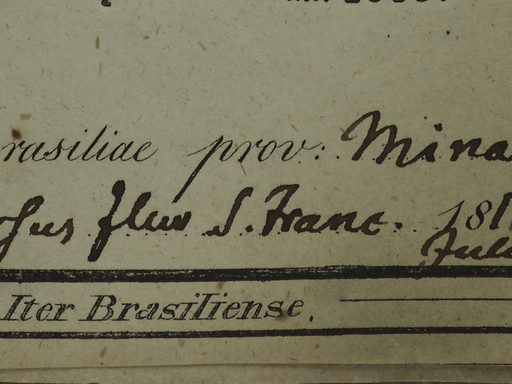 rasiliae prov: Mina
fluv S. Franc. 181
Juli
Iter Brasiliense.